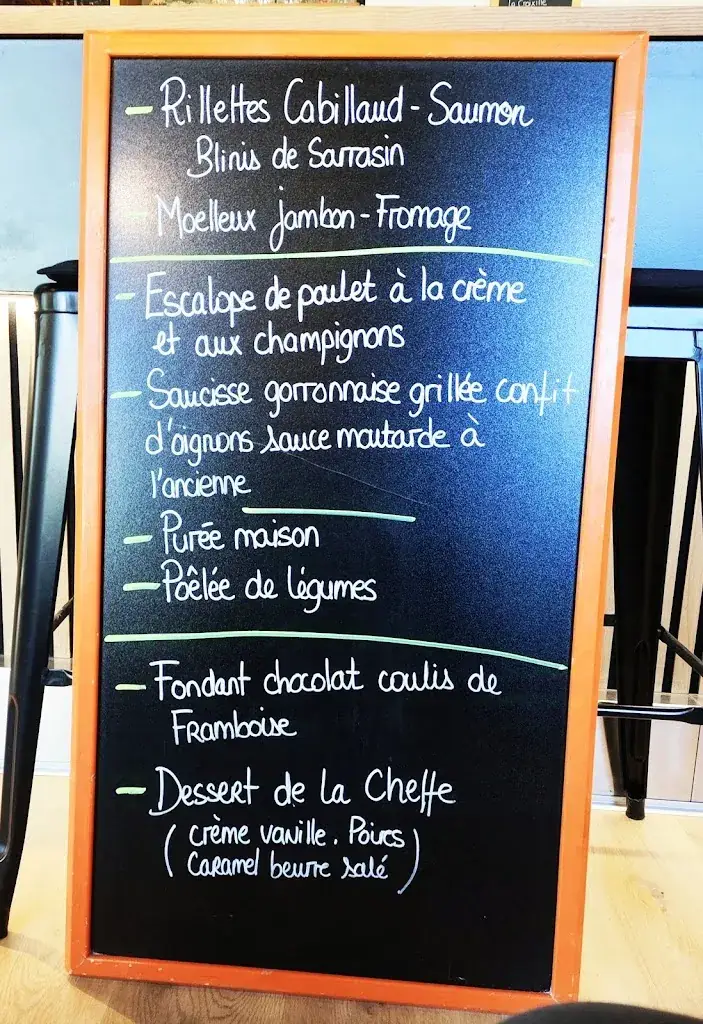 La Croixille
- Rillettes Cabillaud - Saumon
Blinis de Sarrasin
- Moelleux jambon - Fromage
- Escalope de poulet à la crème
et aux champignons
- Saucisse gorronnaise grillée confit
d'oignons sauce moutarde à
l'ancienne
- Purée maison
- Poêlée de légumes
- Fondant chocolat coulis de
Framboise
- Dessert de la Cheffe
( crème vanille. Poires
Caramel beurre salé )